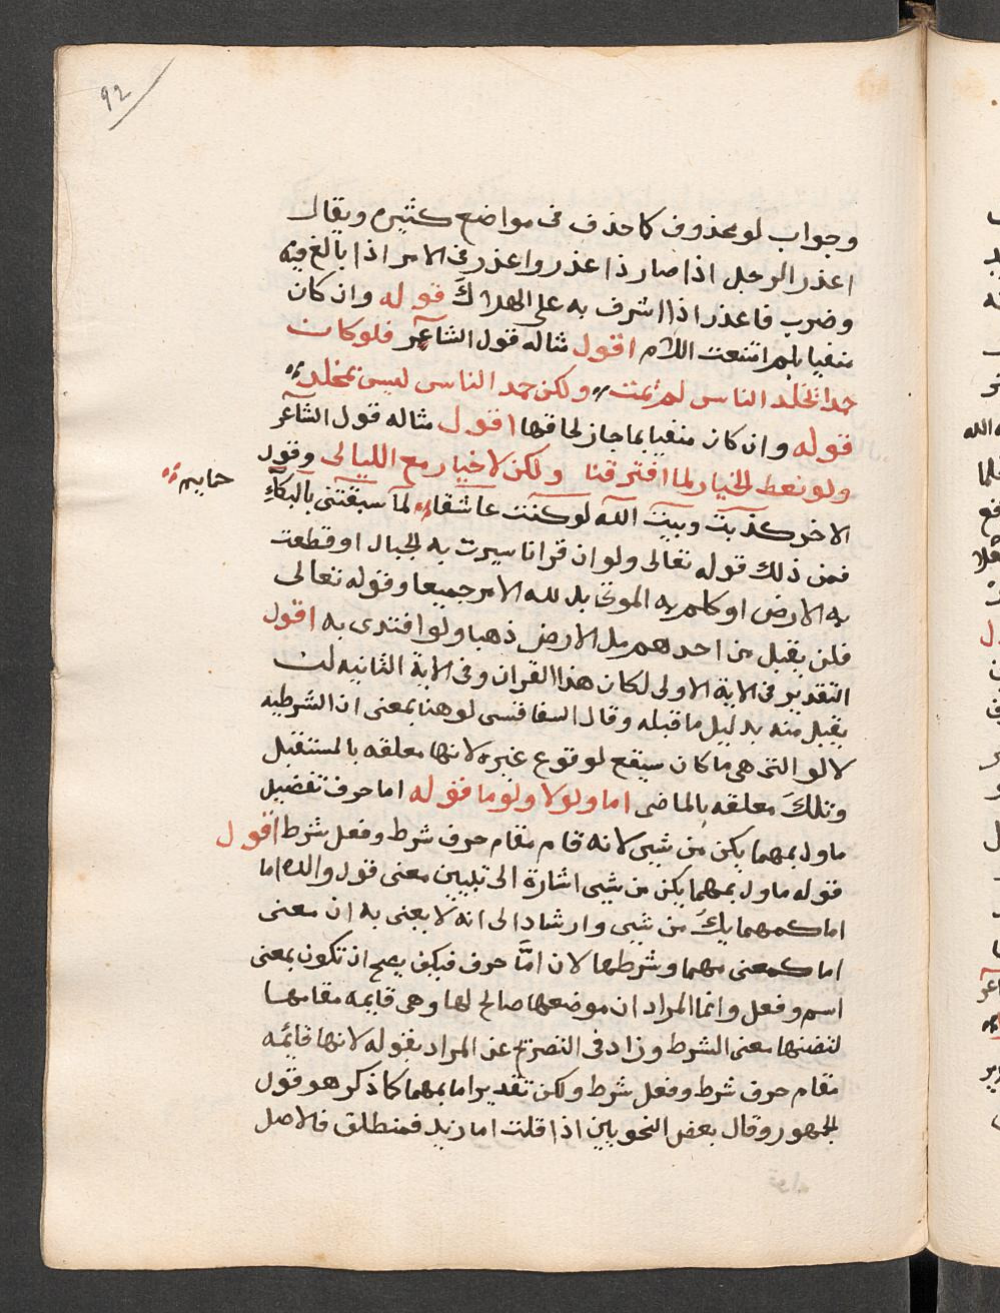 92
وجواب لو محذوف كما حذف فى مواضع كثيره ويقال
اعذر الرجل اذا صار ذا عذر واعذر فى الامر اذا بالغ فيه
وضرب فاعذر اذا اشرف به على الهلاك قوله وان كان
منفيا بلم امتنعت اللام اقول مثاله قول الشاعر فلو كان
حمدا تخلد الناس لم تمت ولكن حمد الناس ليس بمخلد
قوله وان كان منفيا بما جاز لحاقها اقول مثاله قول الشاعر
ولو نعط الخيار لما افترقنا ولكن لا خيار مع الليالى وقول
الاخر كذبت وبيت الله لو كنت عاشقا لما سبقتنى بالبكاء
حمايم
فمن ذلك قوله تعالى ولو ان قرانا سيرت به الجبال او قطعت
به الارض او كلم به الموتى بل لله الامر جميعا وقوله تعالى
فلن يقبل من احدهم مل الارض ذهبا ولو افتدى به اقول
التقدير فى الاية الاولى لكان هذا القران وفى الاية الثانيه لن
يقبل منه بدليل ما قبله وقال السفاقسى لو هنا بمعنى ان الشرطيه
لا لو التى هى ما كان سيقع لوقوع غيره لانها معلقه بالمستقبل
وتلك معلقه بالماضى اما ولولا ولوما قوله اما حرف تفصيل
ماول بمهما يكن من شيى لانه قام مقام حرف شرط وفعل شرط اقول
قوله ماول بمهما يكن من شيى اشارة الى تبيين معنى قول والده اما
اما كمهما يك من شيى وارشاد الى انه لا يعنى به ان معنى
اما كمعنى مهما وشرطها لان امّا حرف فكيف يصح ان تكون بمعنى
اسم وفعل وانما المراد ان موضعها صالح لها وهى قايمه مقامهما
لتضمنها معنى الشرط وزاد فى التصريح عن المراد بقوله لانها قائمه
مقام حرف شرط وفعل شرط ولكن تقدير اما بمهما كما ذكر هو قول
الجمهور وقال بعض النحويين اذا قلت اما زيد فمنطلق فالاصل